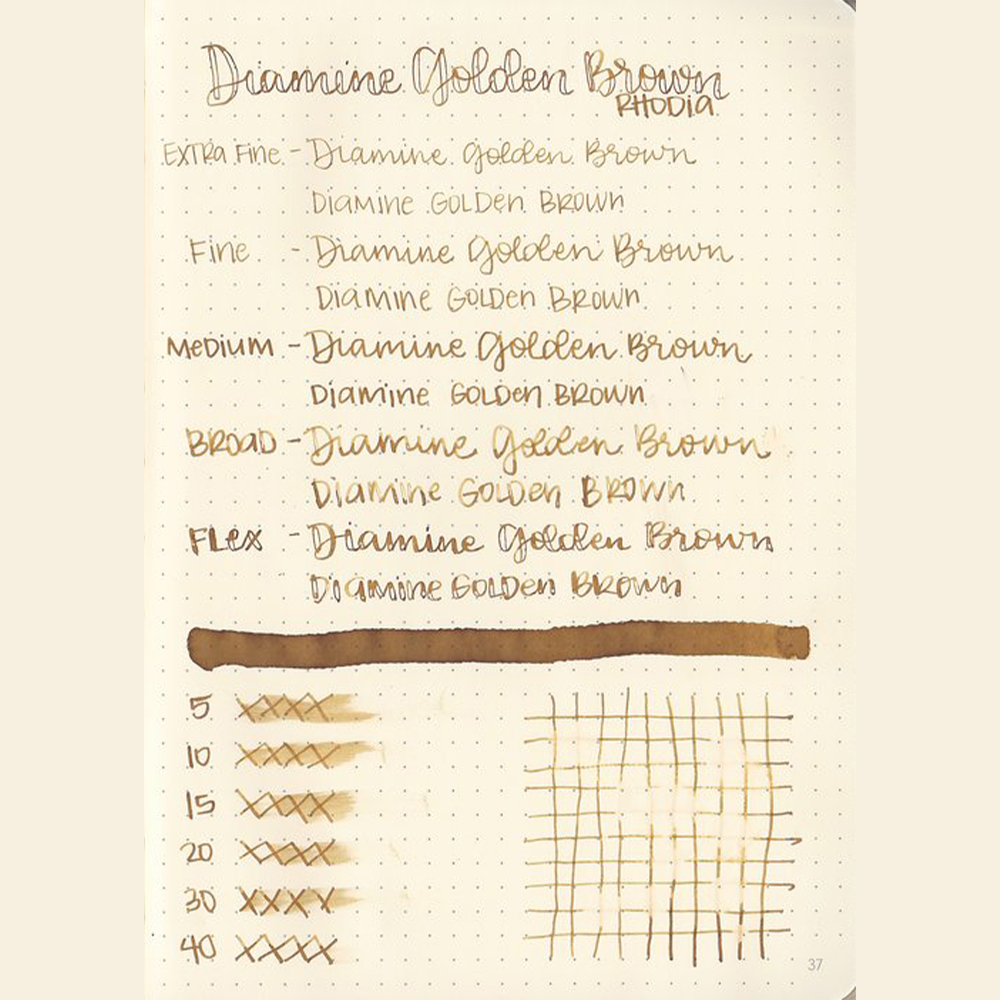 Diamine Golden Brown
RHODIA
EXTRA Fine - Diamine Golden Brown
Diamine GOLDen BROWN
Fine - Diamine Golden Brown
Diamine GOLDen BROWN
MeDium - Diamine Golden Brown
Diamine GOLDen BROWN
BROAD - Diamine Golden Brown
Diamine GOLDen BROWN
FLex - Diamine Golden Brown
Diamine GOLDen BROWN
5 XXXX
10 XXXX
15 XXXX
20 XXXX
30 XXXX
40 XXXX
37